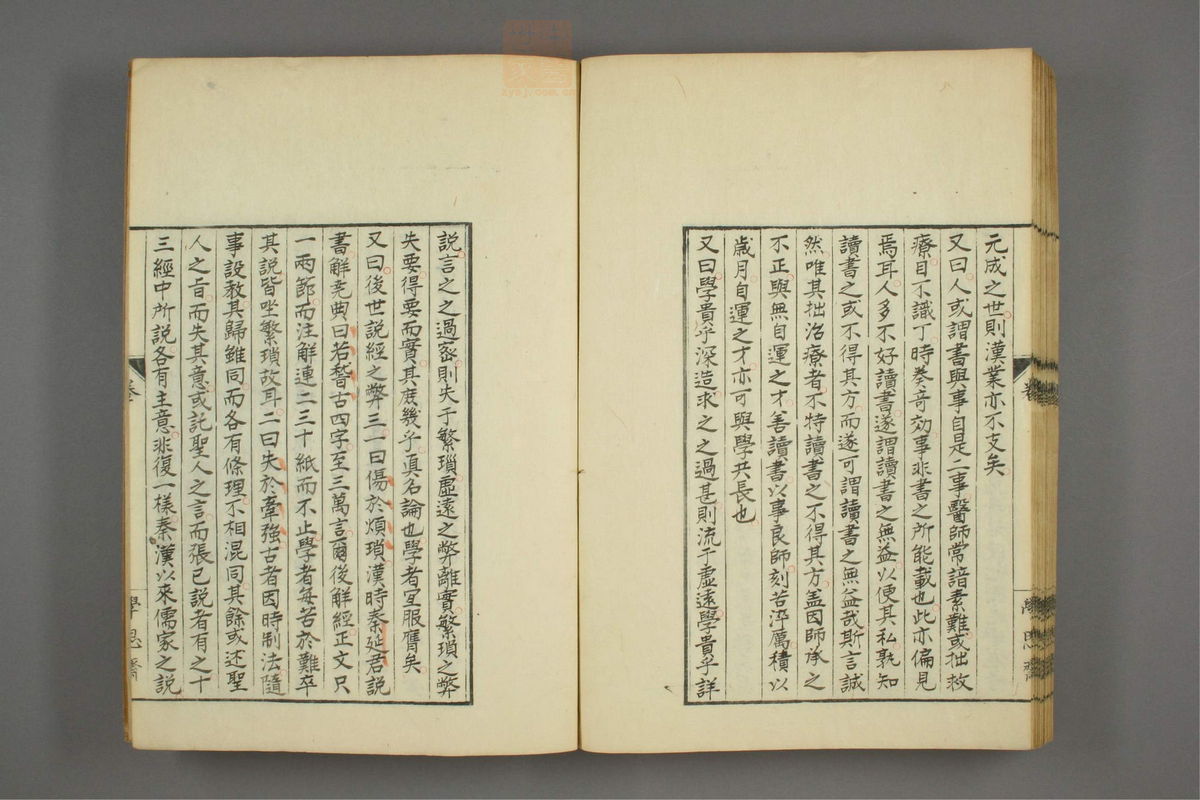 元成之世則漢業亦不支矣
又曰人或謂書與事自是二事醫師常諳素難或拙救
療目不識丁時奏奇効事非書之所能載也此亦偏見
焉耳人多不好讀書遂謂讀書之無益以便其私孰知
讀書之或不得其方而遂可謂讀書之無益哉斯言誠
然唯其拙治療者不特讀書之不得其方盖因師承之
不正與無自運之才善讀書以事良師刻苦淬厲積以
歳月自運之才亦可與學共長也
又曰學貴乎深造求之之過甚則流于虛遠學貴乎詳
説言之之過密則失于繁瑣虛遠之弊離實繁瑣之弊
失要得要而實其庶幾乎眞名論也學者宜服膺矣
又曰後世説經之弊三一曰傷於煩瑣漢時秦延君説
書解尭典曰若稽古四字至三萬言爾後解經正文只
一兩節而注解連二三十紙而不止學者每苦於難卒
其説皆坐繁瑣故耳二曰失於牽強古者因時制法隨
事設教其歸雖同而各有條理不相混同其餘或述聖
人之旨而失其意或託聖人之言而張己説者有之十
三經中所説各有主意非復一樣秦漢以來儒家之説
學思齋
zysj.com.cn